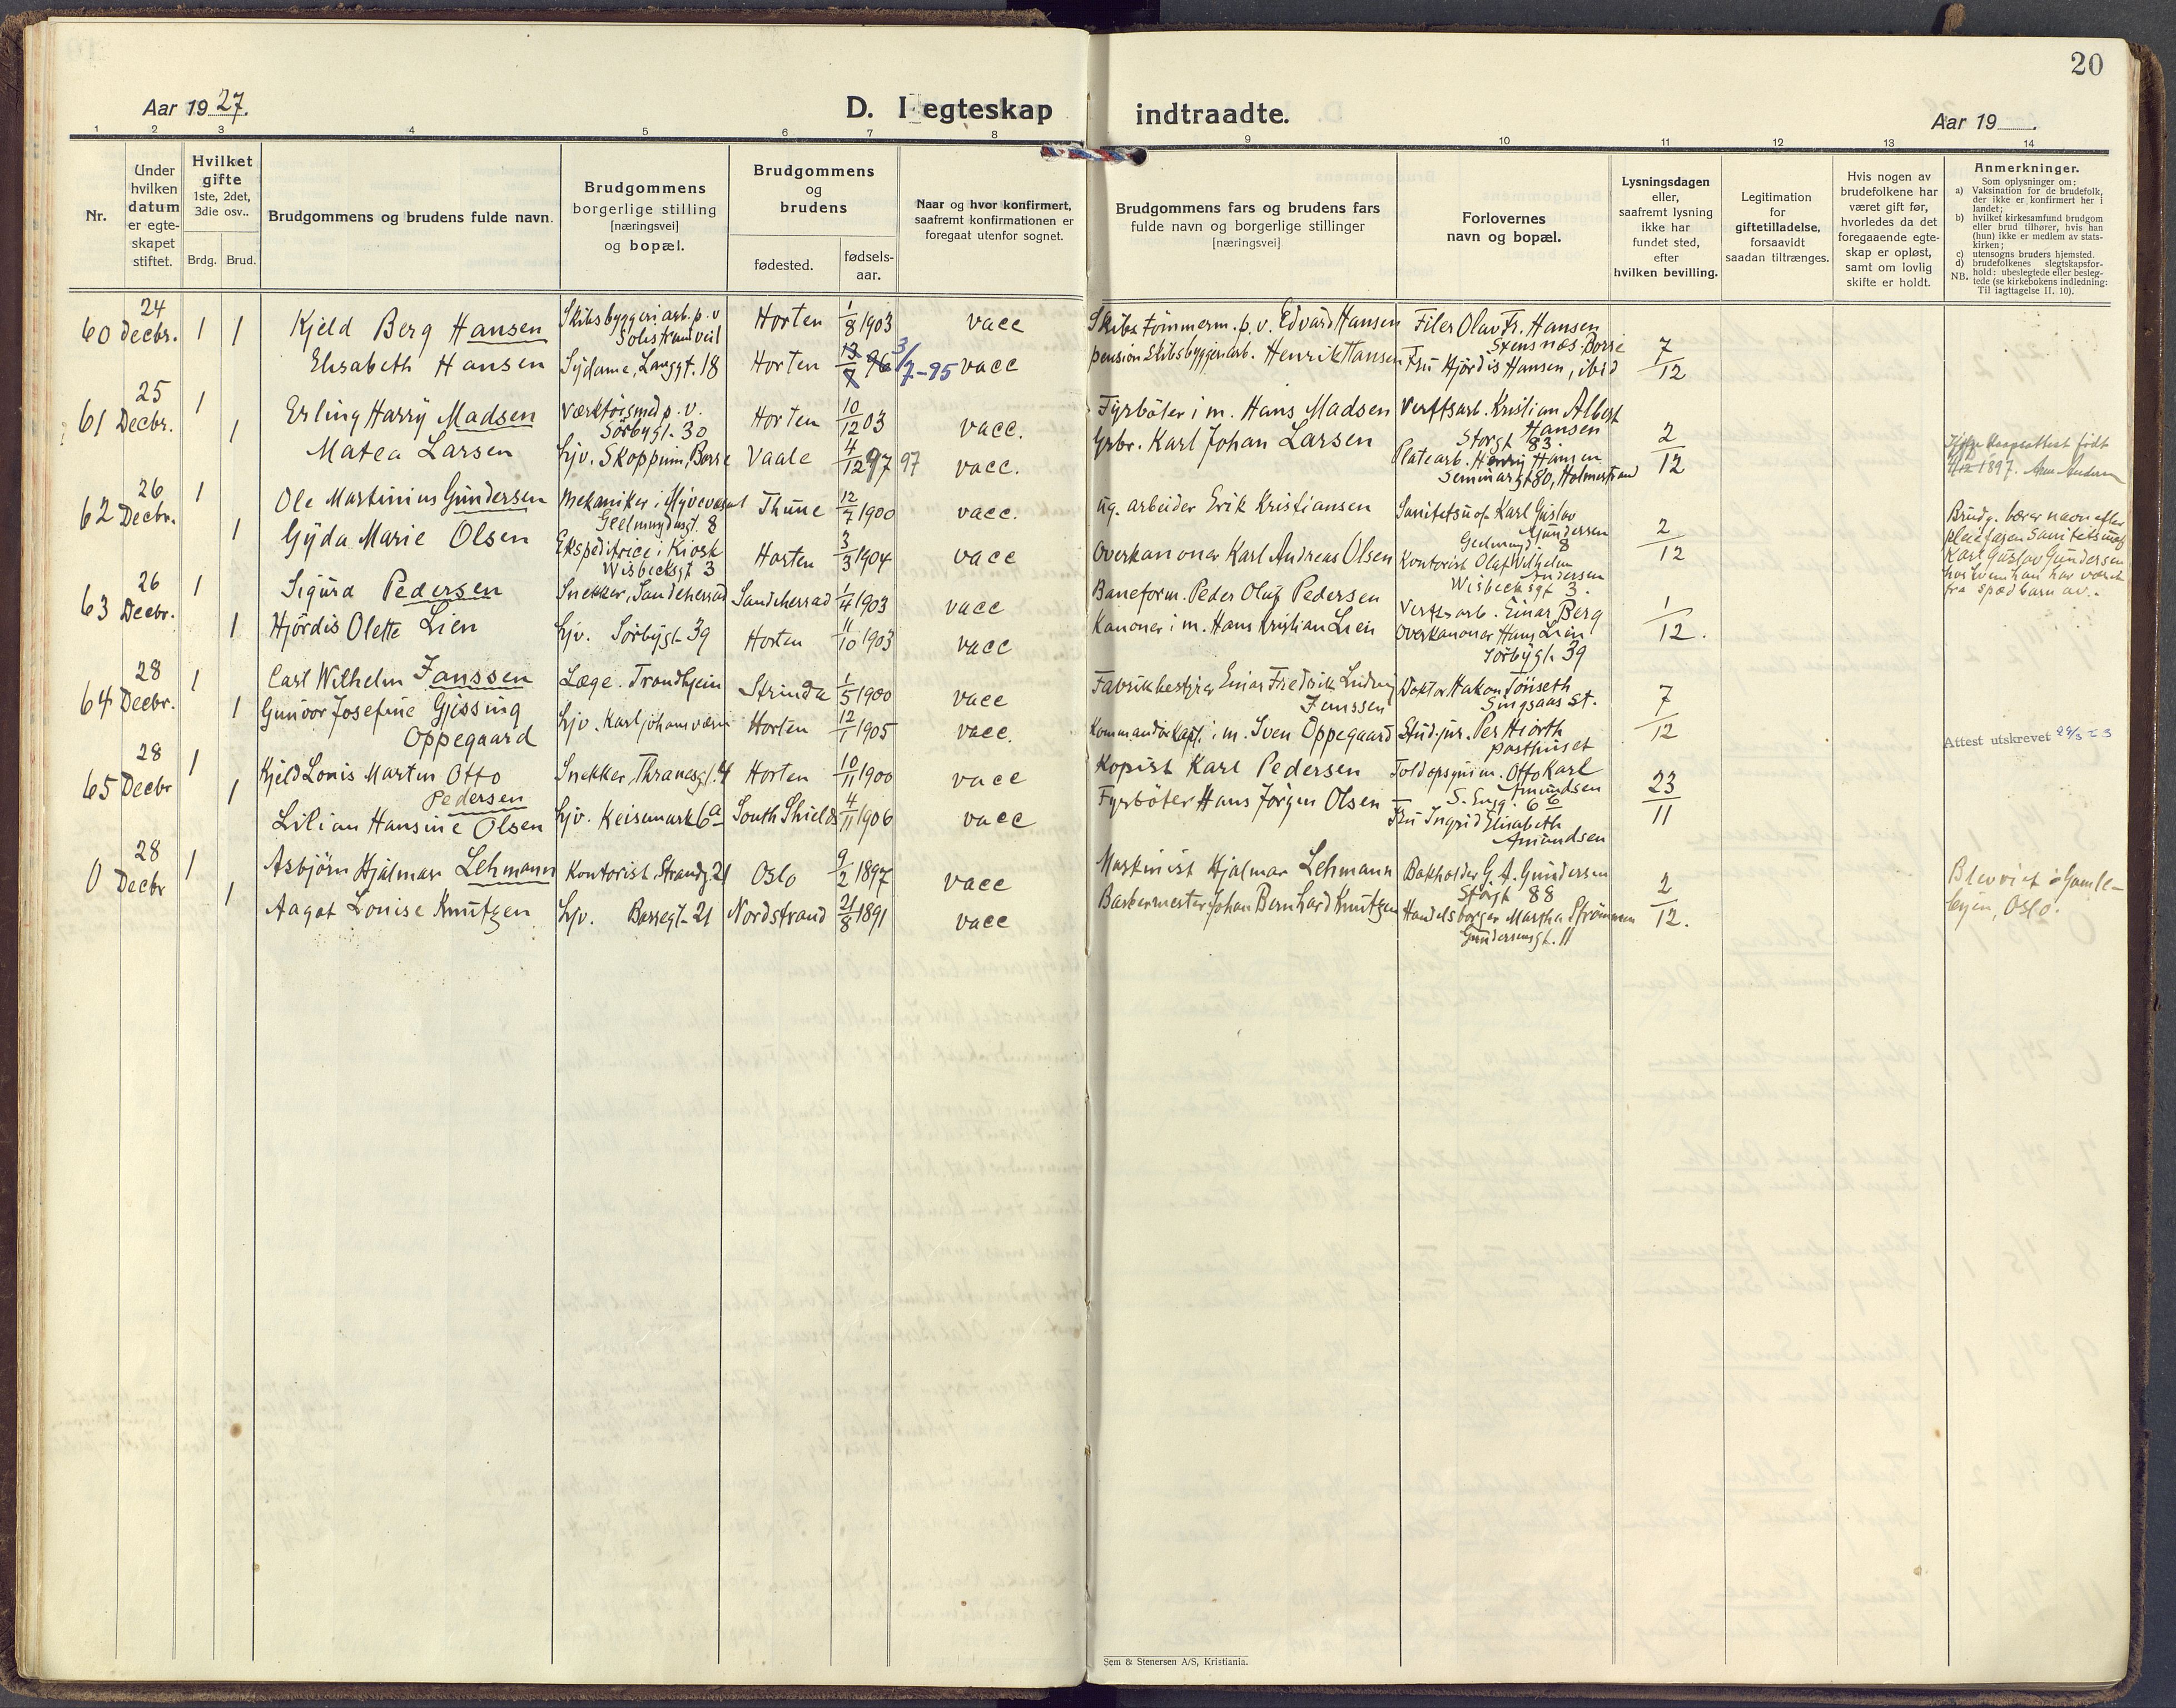 20
Aar 19 27.
D. I egteskap indtraadte.
Aar 19
1 2 3 4 5 6 7 8 9 10 11 12 13 14
Nr.
Under hvilken datum er egte-skapet stiftet.
Hvilket gifte 1ste, 2det, 3die osv..
Brdg. Brud.
Brudgommens og brudens fulde navn.
Brudgommens borgerlige stilling [næringsvei] og bopæl.
Brudgommens og brudens
fødested.
fødsels-aar.
Naar og hvor konfirmert, saafremt konfirmationen er foregaat utenfor sognet.
Brudgommens fars og brudens fars fulde navn og borgerlige stillinger [næringsvei]
Forlovernes navn og bopæl.
Lysningsdagen eller, saafremt lysning ikke har fundet sted, efter hvilken bevilling.
Legitimation for giftetilladelse, forsaavidt saadan tiltrænges.
Hvis nogen av brudefolkene har været gift før, hvorledes da det foregaaende egte-skap er opløst, samt om lovlig skifte er holdt.
Anmerkninger.
Som oplysninger om:
a) Vaksination for de brudefolk, der ikke er konfirmert her i landet;
b) hvilket kirkesamfund brudgom eller brud tilhører, hvis han (hun) ikke er medlem av stats-kirken;
c) utensogns bruders hjemsted.
d) brudefolkenes slegtskapsfor-hold: ubeslegtede eller besleg-tede (se kirkebokens indledning: Til iagttagelse II. 10).
NB.
60 24 Decbr. 1 1 Kjeld Berg Hansen Skibsbyggeriarb. p. v Solistrandveil Horten 1/8 1903 vacc Skibstømmerm. p. v. Edvard Hansen Filer Olav Fr. Hansen Stensnæs. Borre
Elisabeth Hansen Sydame, Langgt. 18 Horten 13/7 96 3/7-95 vacc pension Skibsbyggeriarb. Henrik Hansen Fru Hjördis Hansen, ibid 7/12
61 25 Decbr. 1 Erling Harry Madsen Værktöismed p. v. Sörbygt. 30 Horten 10/12 03 vacc. Fyrböter i m. Hans Madsen Verftsarb. Kristian Albert Hansen Storgt 83.
1 Matea Larsen Hjv. Skoppum, Borre Vaale 4/12 97 97 vacc. Grbr. Karl Johan Larsen Platearb. Henry Hansen Seminargt 80, Holmestrand 2/12
født 1897.
62 26 Decbr. 1 Ole Martinius Gundersen Mekaniker i Geelmuydsgt. 8 Thune 12/7 1900 vacc. ug. arbeider Erik Kristiansen Sanitetsuof. Karl Gustav Gundersen 8
1 Gyda Marie Olsen Ekspeditrice i Kiosk Wisbecksgt 3 Horten 3/3 1904 vacc Overkanoner Karl Andreas Olsen Kontorist Olaf Wilhelm Andersen Wisbecksgt 3. 2/12
Brudg. bærer navn efter
pleiefaren Sanitetsuof
Karl Gustav Gundersen
hos hvem han har været
fra spædbarn av.
63 26 Decbr. 1 Sigurd Pedersen Snekker, Sandeherred Sandeherrad 1/4 1903 vacc Baneform. Peder Oluf Pedersen Verftsarb. Einar Berg
1 Hjördis Olette Lien Hjv. Sörbygt. 39 Horten 11/10 1903 vacc Kanoner i m. Hans Kristian Lien Overkanoner Hans Lien Sörbygt. 39 1/12.
64 28 Decbr. 1 Carl Wilhelm Janssen Læge. Trondhjem Strinda 1/5 1900 vacc Fabrikbestyrer Einar Fredrik Ludvig Janssen Doktor Hakon Tönseth Singsaas St.
1 Gunvor Josefine Gjessing Oppegaard Hjv. Karljohansværn Horten 12/1 1905 vacc. Kommandörkapt. i m. Sven Oppegaard Stud. jur. Per Hiorth Posthuset 7/12
Attest utskrevet
65 28 Decbr 1 Kjeld Louis Martin Otto Pedersen Snekker, Thranesgt. 4 Horten 10/11 1900 vacc Kopist Karl Pedersen Toldopsynsm. Otto Karl Amundsen
1 Lilian Hansine Olsen Hjv. Keisemark 6a South Shields 4/11 1906 vacc Fyrböter Hans Jörgen Olsen Fru Ingrid Elisabeth Amundsen 23/11
0 28 Decbr 1 Asbjörn Hjalmar Lehmann Kontorist. Strandg. 21 Oslo 9/2 1897 vacc Maskinist Hjalmar Lehmann Bokholder G. A. Gundersen Storgt 88
1 Aagot Louise Knutzen Hjv. Borregt. 21 Nordstrand 21/8 1891 vacc Barbermester Johan Bernhard Knutzen Handelsborger Martha Strömmen Gundersensgt. 11 2/12.
Blev viet i Gamle-
byen, Oslo.
Sem & Stenersen A/S, Kristiania.